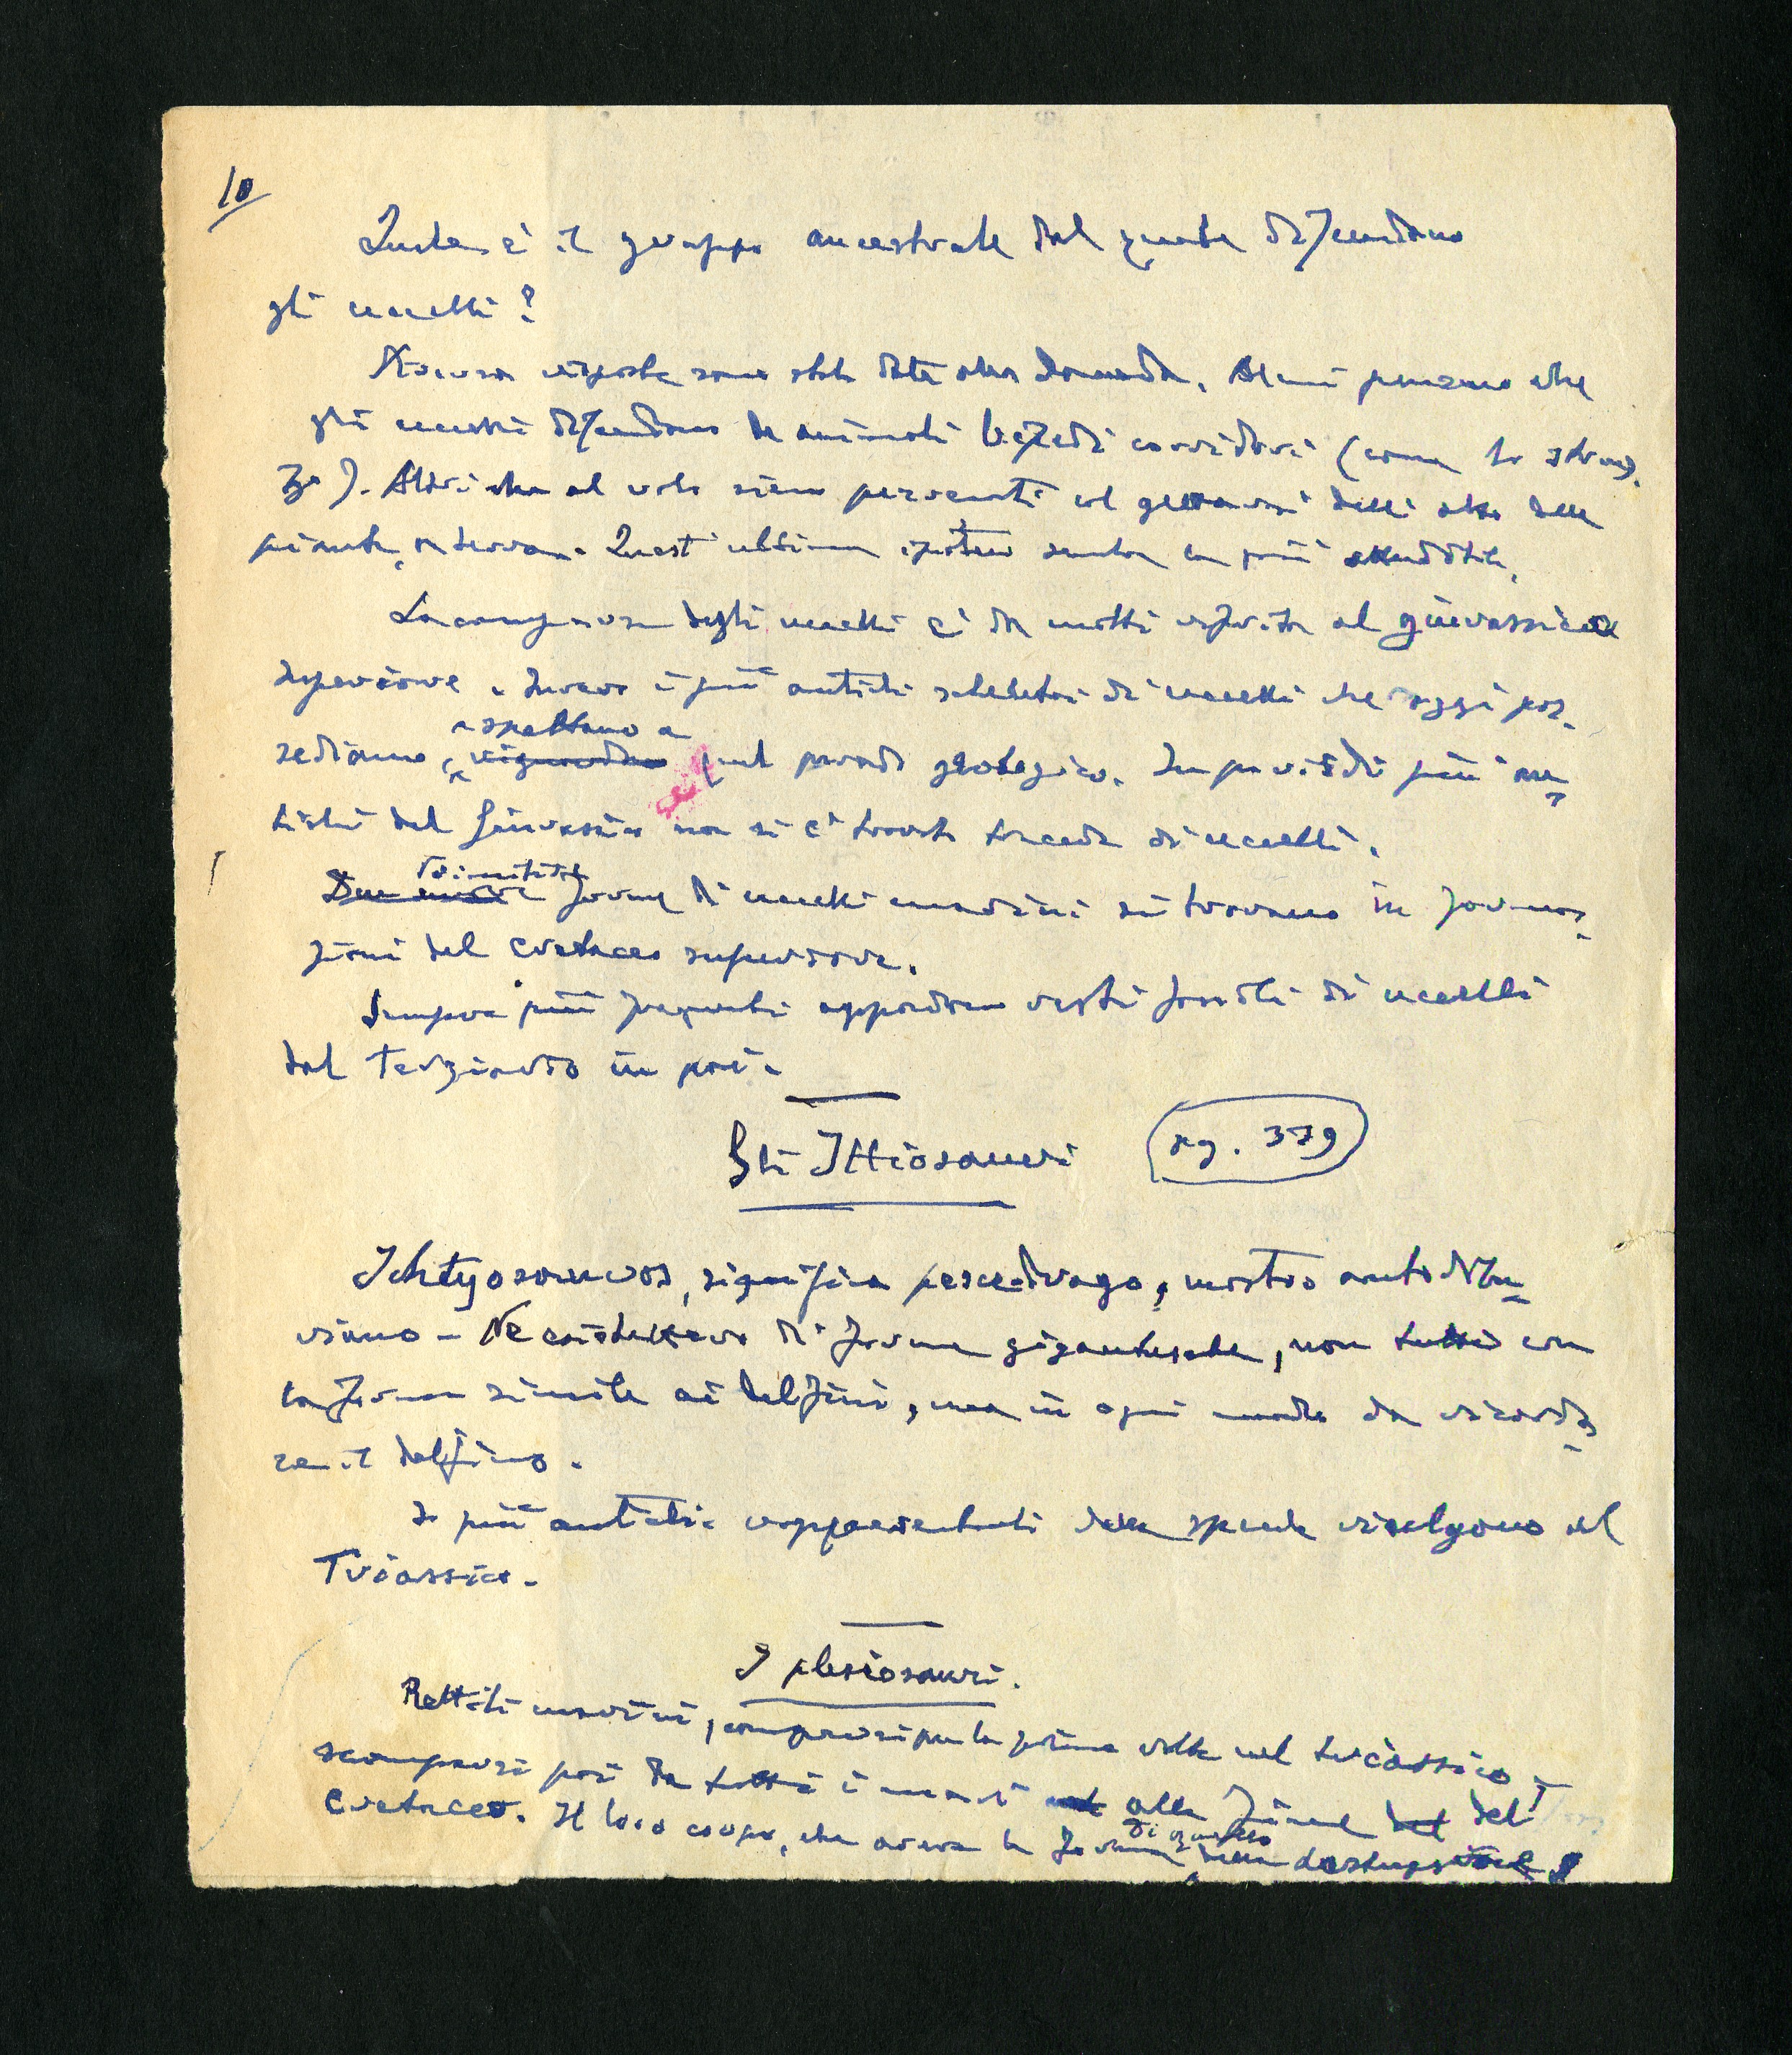 10
Quale è il gruppo ancestrale dal quale discendano
gli uccelli?
risposte sono state date alla domanda. Alcuni pensano che
gli uccelli discendano da animali bipedi corridori (come lo struz-
zo). Altri che al volo siano pervenuti col gettarsi dall'alto delle
piante, a terra. Quest'ultima ipotesi sembra la più attendibile.
La comparsa degli uccelli è da molti riferita al giurassico
superiore. Invero i più antichi scheletri di uccelli che oggi pos-
aspettano a
sediamo, riguardano quel periodo geologico. In periodi più an-
tichi del Giurassico non si è trovata traccia di uccelli.
Due nuove forme di uccelli marini si trovano in forma-
zioni del cretaceo superiore.
Sempre più frequenti appaiono resti fossili di uccelli
dal terziario in poi.
Gli Ittiosauri pg. 379
Ichtyosauros, significa pescedrago, mostro antidilu-
viano - Ne esistettero di forme gigantesche, non tutti con
la forma simile ai delfini, ma in ogni modo da ricorda-
re il delfino.
I più antichi rappresentanti della specie risalgono al
Triassico.
I plesiosauri.
Rettili marini, comparsi per la prima volta nel triassico,
scomparsi poi da tutti i mari alla fine del del
di quello
Cretaceo. Il loro corpo, che aveva la forma della